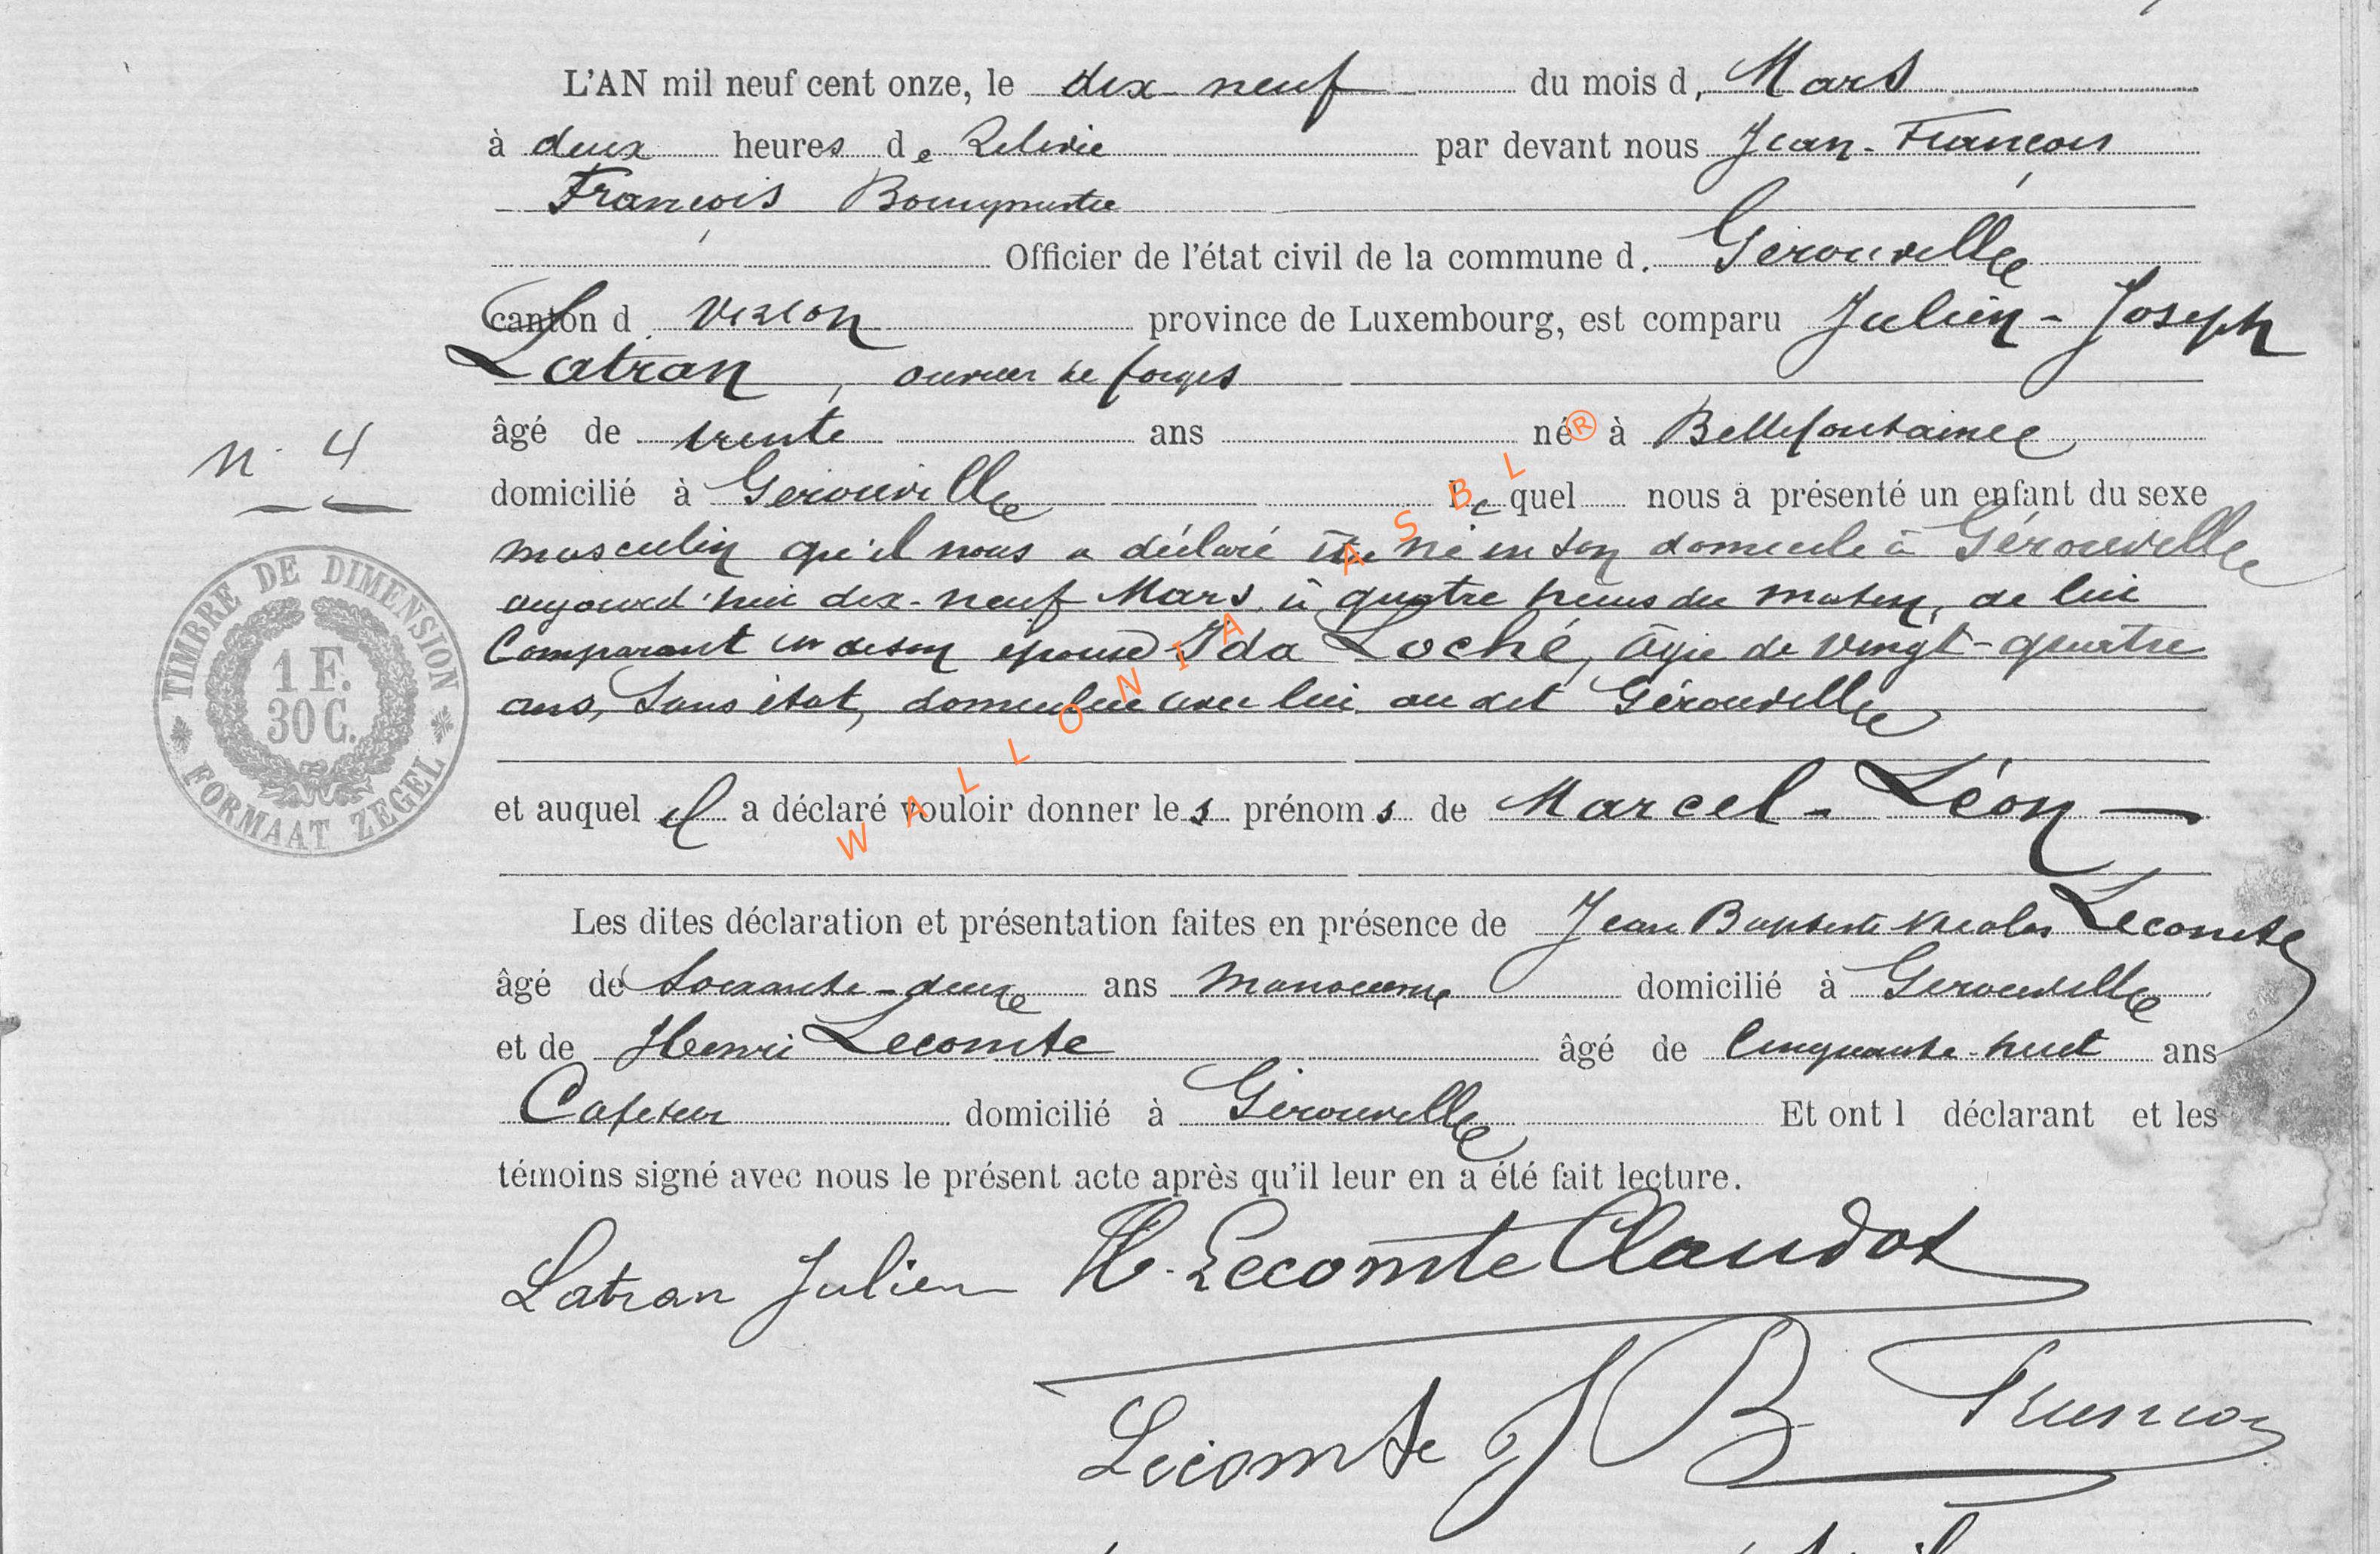 L'AN mil neuf cent onze, le dix-neuf du mois d, Mars
à deux heures de Relevée par devant nous Jean-François
François Bourgmestre
Officier de l'état civil de la commune d. Gérouville
canton d Virton province de Luxembourg, est comparu Julien-Joseph
Latran, ouvrier de forges
âgé de trente ans né à Bellefontaine
domicilié à Gerouville lequel nous a présenté un enfant du sexe
n. 4
masculin qu'il nous a déclaré être né en son domicile à Gérouville
aujourd'hui dix-neuf Mars à quatre heures du matin, de lui
Comparant et de son épouse Ida Loché, âgée de vingt-quatre
ans, Sans état, domiciliée avec lui au dit Gérouville
TIMBRE DE DIMENSION
1 F.
30 C.
FORMAAT ZEGEL
et auquel il a déclaré vouloir donner les prénoms de Marcel-Léon
Les dites déclaration et présentation faites en présence de Jean Baptiste Nicolas Lecomte
âgé de Soixante-deux ans manoeuvre domicilié à Gerouville
et de Henri Lecomte âgé de Cinquante-huit ans
Cafetier domicilié à Gérouville Et ont l déclarant et les
témoins signé avec nous le présent acte après qu'il leur en a été fait lecture.
Latran Julien H. Lecomte Claudot
Lecomte J B
WALLONIA ASBL ®